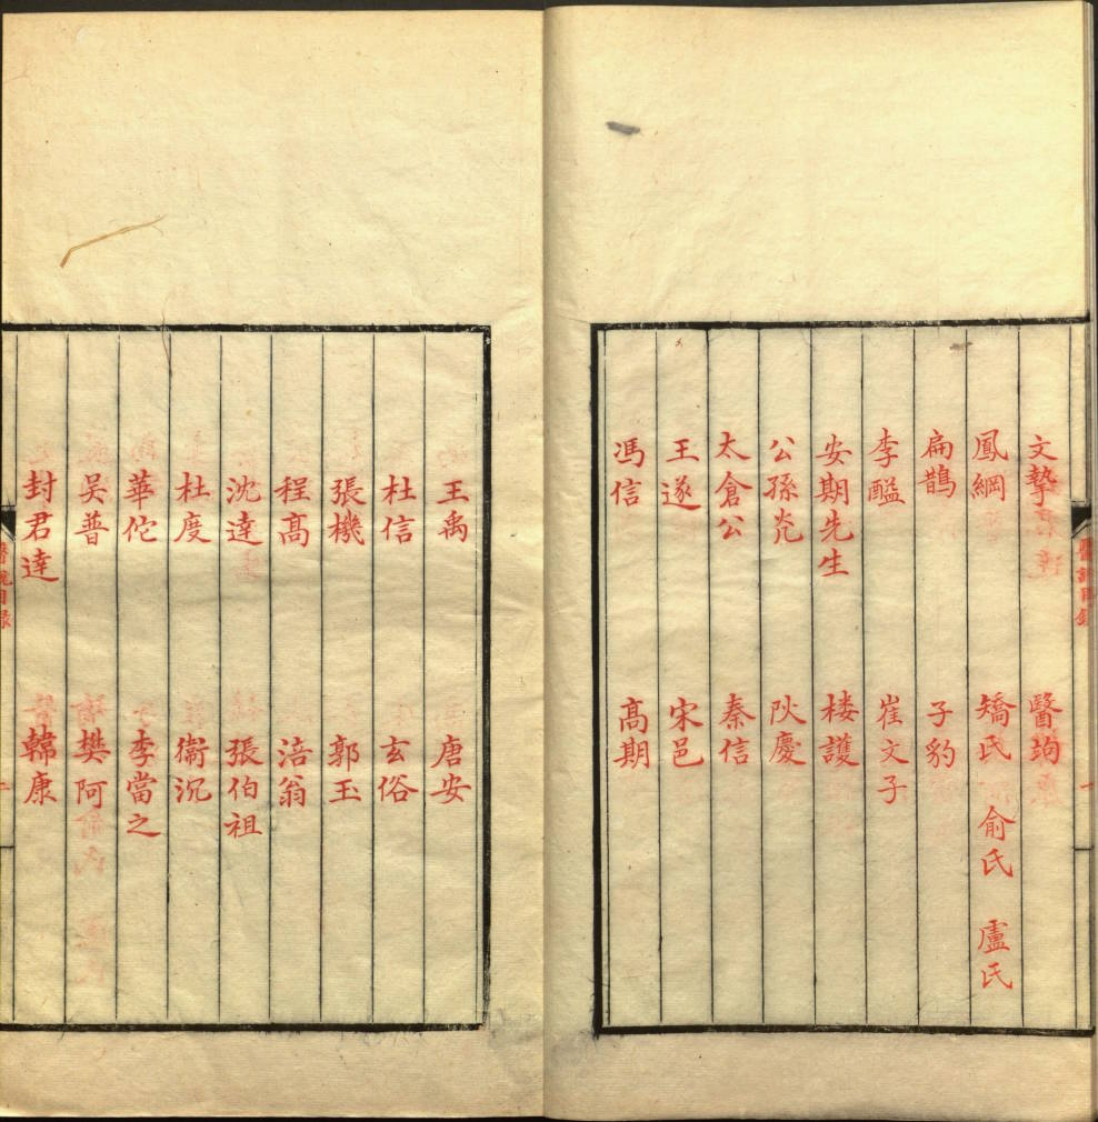 文摯 醫竘
鳳綱 矯氏 俞氏 盧氏
扁鵲 子豹
李醯 崔文子
安期先生 樓護
公孫光 陽慶
太倉公 秦信
王遂 宋邑
馮信 高期
醫說目錄
王禹 唐安
杜信 玄俗
張機 郭玉
程高 涪翁
沈達 張伯祖
杜度 衞沉
華佗 李當之
吴普 樊阿
封君達 韓康
醫說目錄